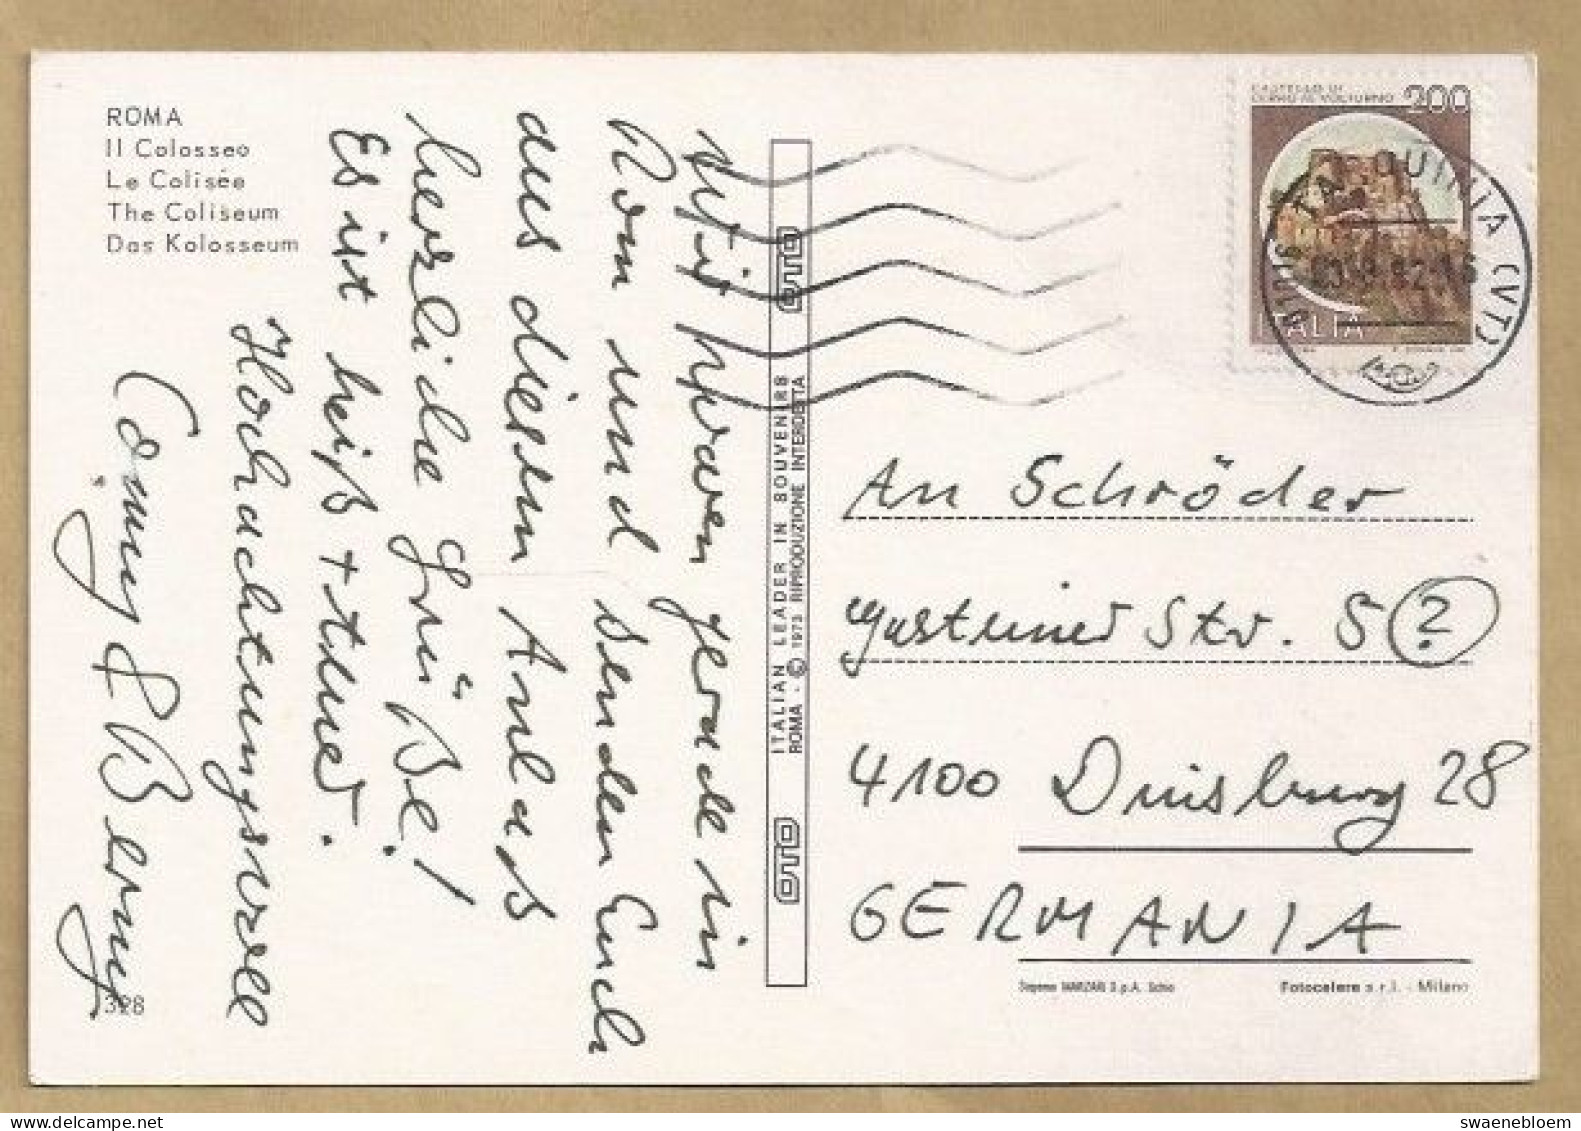 ROMA
Il Colosseo
Le Colisée
The Coliseum
Das Kolosseum
Wir waren gerade in
Rom und senden Euch
aus diesem Anlaß
herzliche Grüße!
Es ist heiß + teuer.
Hochachtungsvoll
Conny & Berny
328
ITALIAN LEADER IN SOUVENIRS
ROMA - © 1973 RIPRODUZIONE INTERDETTA
OTO
OTO
CASTELLO DI
CERRO AL VOLTURNO 200
ITALIA
TARQUINIA (VT)
An Schröder
Gasteiner Str. 5 ?
4100 Duisburg 28
GERMANIA
S.p.A. Schio
Fotocelere s.r.l. - Milano
swaenebloem